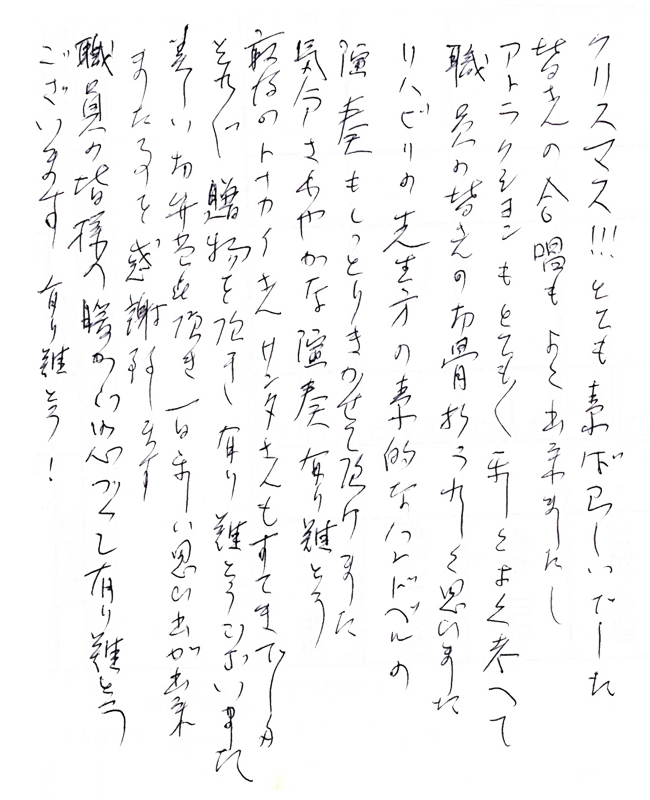 クリスマス!!! とても素ばらしいでした
皆さんの合唱も よく出来ましたし
アトラクションもとても〱 楽しくよく考へて
職員の皆さんのお骨折りうれしく思いました
リハビリの先生方の素的なハンドベルの
演奏もしっとりきかせて頂けました
気分さわやかな演奏 有り難とう
のトナカイさん サンタさんもすてきでした
贈物を頂きまし 有り難とうございました
楽しいお弁当も頂き 一日楽しい思い出が出来
ました事を感謝致します
職員の皆様へ 暖かい心づくし有り難とう
ございます 有り難とう!